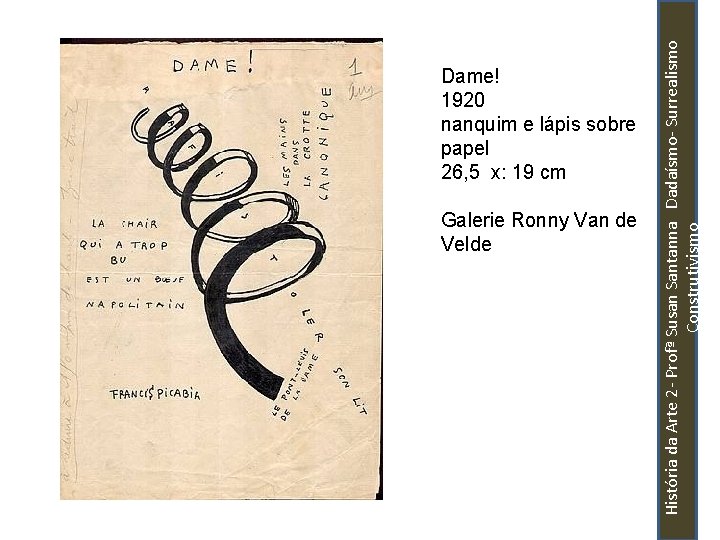 DAME!
1
LES MAINS
DANS
LA CROTTE
CANONIQUE
LA CHAIR
QUI A TROP
BU
EST UN BŒUF
NAPOLITAIN
FRANCIS PICABIA
LE PONT-LEVIS
DE LA DAME
SON LIT
Dame!
1920
nanquim e lápis sobre
papel
26,5 x: 19 cm
Galerie Ronny Van de
Velde
História da Arte 2 - Profª Susan Santanna Dadaísmo- Surrealismo
Construtivismo